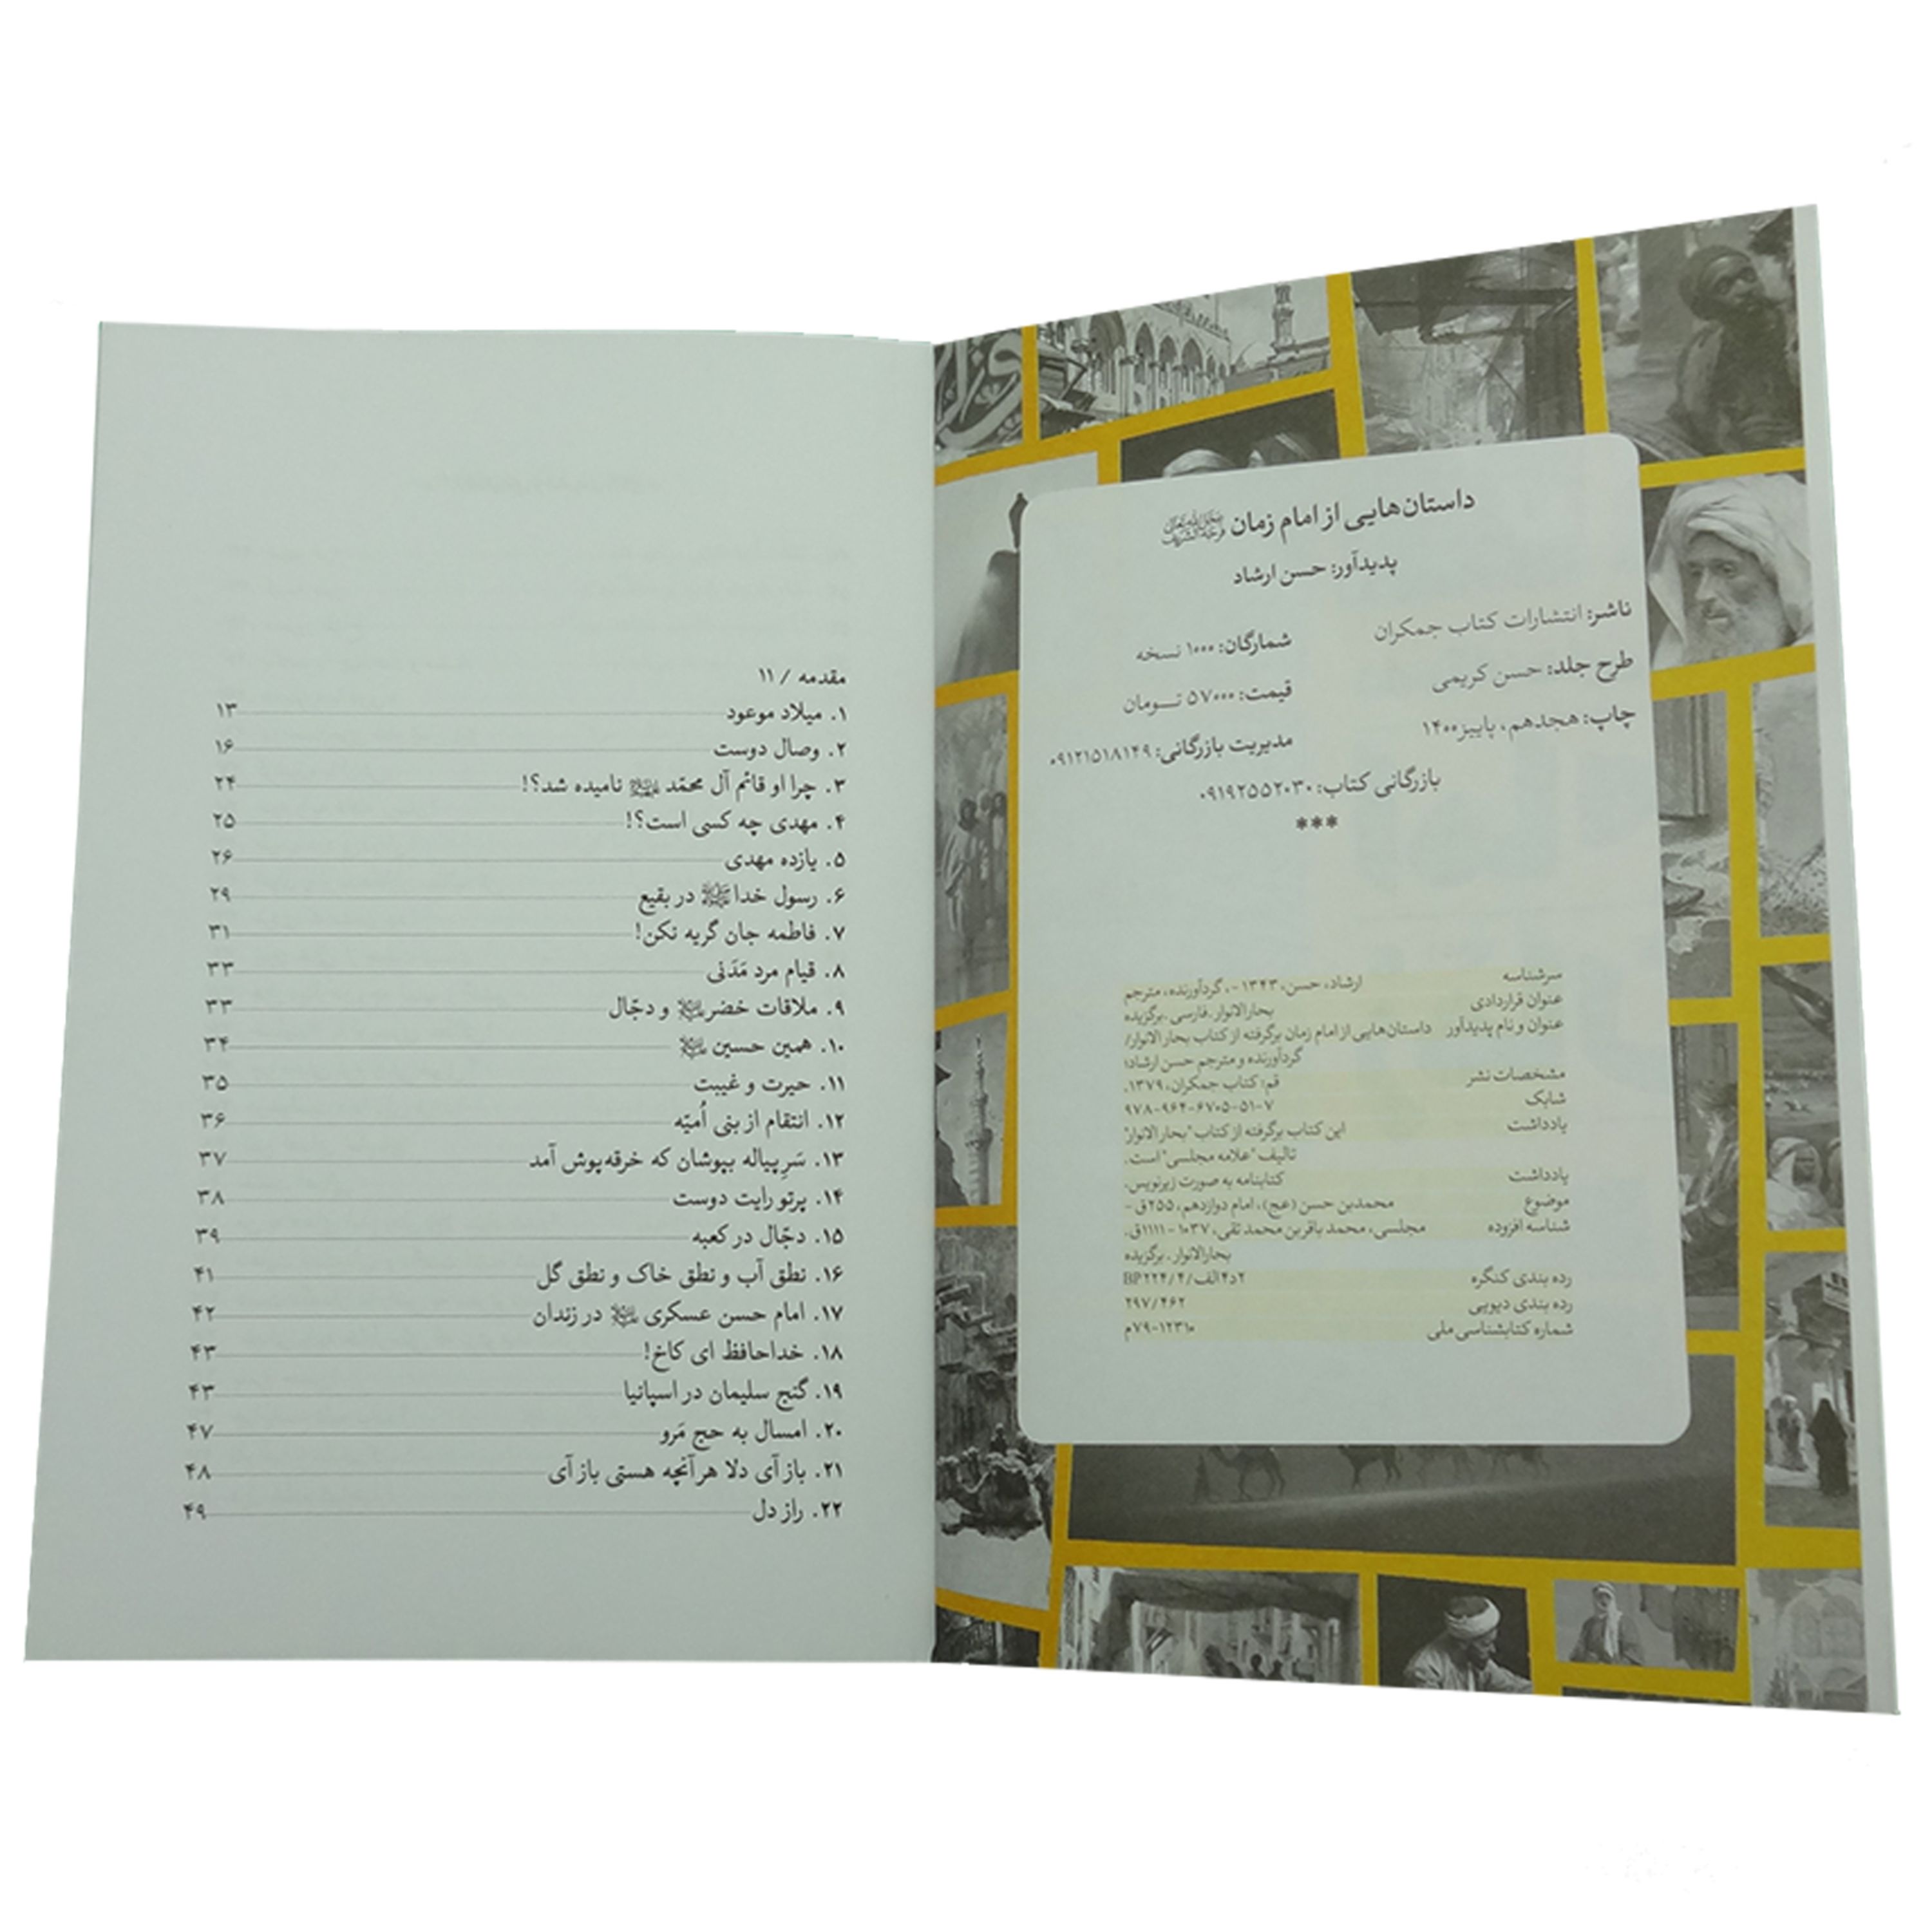 داستان‌هایی از امام زمان عجل الله تعالی فرجه الشریف
پدیدآور: حسن ارشاد
ناشر: انتشارات کتاب جمکران
شمارگان: ۱۰۰۰ نسخه
طرح جلد: حسن کریمی
قیمت: ۵۷۰۰۰ تومان
چاپ: هجدهم، پاییز ۱۴۰۰
مدیریت بازرگانی: ۰۹۱۲۱۵۱۸۱۴۹
بازرگانی کتاب: ۰۹۱۹۲۵۵۲۰۳۰
***
سرشناسه ارشاد، حسن، ۱۳۴۳ - ، گردآورنده، مترجم
عنوان قراردادی بحارالانوار. فارسی. برگزیده
عنوان و نام پدیدآور داستان‌هایی از امام زمان برگرفته از کتاب بحارالانوار/
گردآورنده و مترجم حسن ارشاد؛
مشخصات نشر قم: کتاب جمکران، ۱۳۷۹.
شابک ۹۷۸-۹۶۴-۶۷۰۵-۵۱-۷
یادداشت این کتاب برگرفته از کتاب "بحارالانوار"
تالیف "علامه مجلسی" است.
یادداشت کتابنامه به صورت زیرنویس.
موضوع محمدبن حسن (عج)، امام دوازدهم، ۲۵۵ق -
شناسه افزوده مجلسی، محمد باقربن محمد تقی، ۱۰۳۷ - ۱۱۱۱ق.
بحارالانوار. برگزیده
رده بندی کنگره ۲د۴الف/۴/BP۲۲۴
رده بندی دیویی ۲۹۷/۴۶۲
شماره کتابشناسی ملی ۷۹-۱۲۳۱۰م
مقدمه / ۱۱
۱. میلاد موعود ۱۳
۲. وصال دوست ۱۶
۳. چرا او قائم آل محمّد نامیده شد؟! ۲۴
۴. مهدی چه کسی است؟! ۲۵
۵. یازده مهدی ۲۶
۶. رسول خدا در بقیع ۲۹
۷. فاطمه جان گریه نکن! ۳۱
۸. قیام مرد مَدَنی ۳۳
۹. ملاقات خضر و دجّال ۳۳
۱۰. همین حسین ۳۴
۱۱. حیرت و غیبت ۳۵
۱۲. انتقام از بنی اُمیّه ۳۶
۱۳. سَرِ پیاله بپوشان که خرقه‌پوش آمد ۳۷
۱۴. پرتو رایت دوست ۳۸
۱۵. دجّال در کعبه ۳۹
۱۶. نطق آب و نطق خاک و نطق گل ۴۱
۱۷. امام حسن عسکری در زندان ۴۲
۱۸. خداحافظ ای کاخ! ۴۳
۱۹. گنج سلیمان در اسپانیا ۴۳
۲۰. امسال به حج مَرو ۴۷
۲۱. باز آی دلا هر آنچه هستی باز آی ۴۸
۲۲. راز دل ۴۹